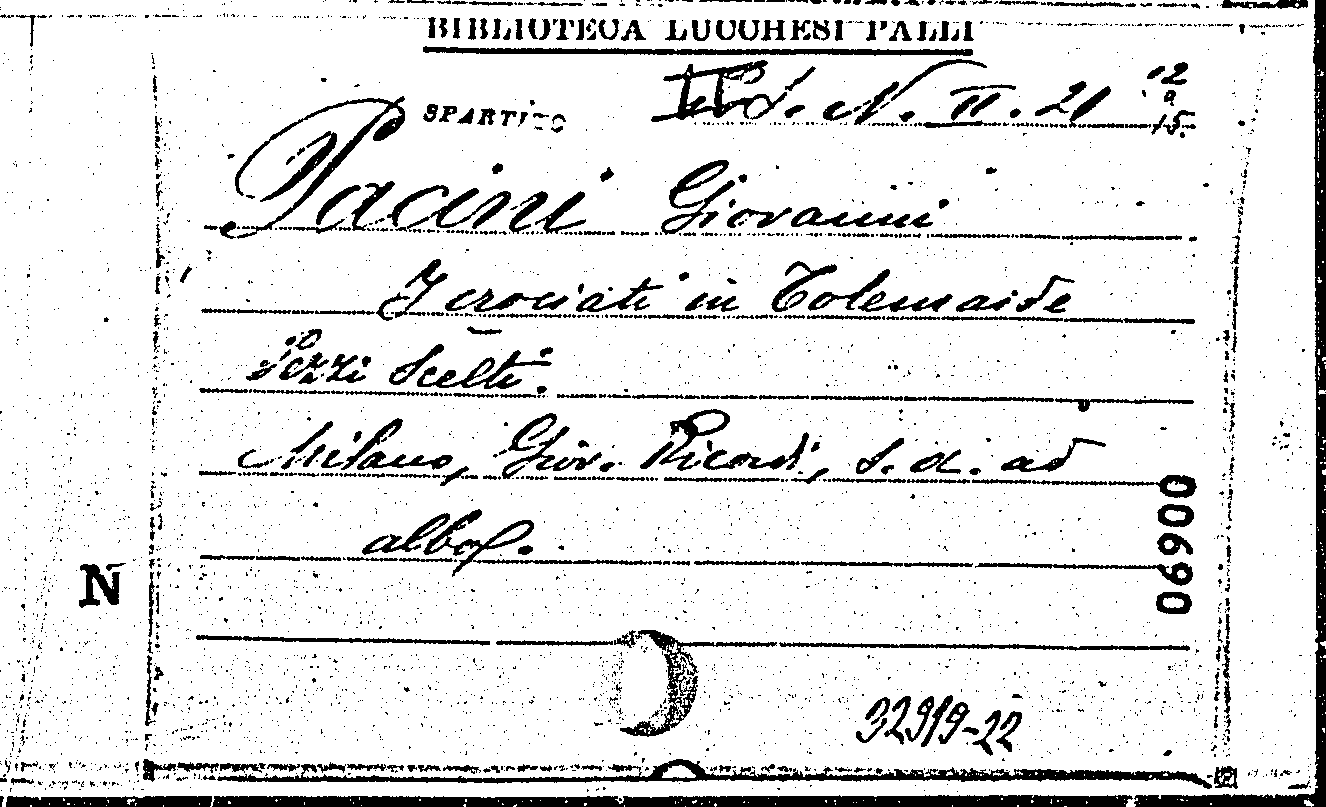 BIBLIOTECA LUCCHESI PALLI
SPARTITO
N. II. 21 12
a
15.
Pacini Giovanni
I crociati in Tolemaide
Pezzi Scelti.
Milano, Giov. Ricordi, s. d. ad
alb.
06900
N
32919-22